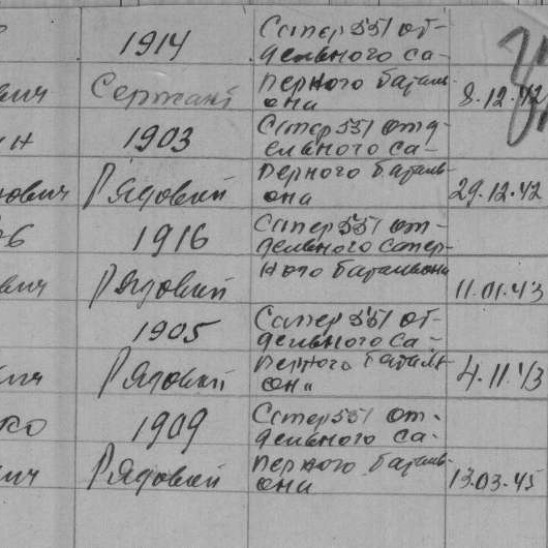 1914 Сапер 551 от-
дельного са-
вич Сержант перного баталь-
она 8.12.42
ин 1903 Сапер 551 отд-
ельного са-
нович Рядовой перного баталь-
она 29.12.42
1916 Сапер 551 от-
дельного сапер-
евич Рядовой ного батальона
11.01.43
1905 Сапер 551 от-
дельного са-
вич Рядовой перного баталь-
она 4.11.43
ко 1909 Сапер 551 от-
дельного са-
вич Рядовой перного баталь-
она 13.03.45